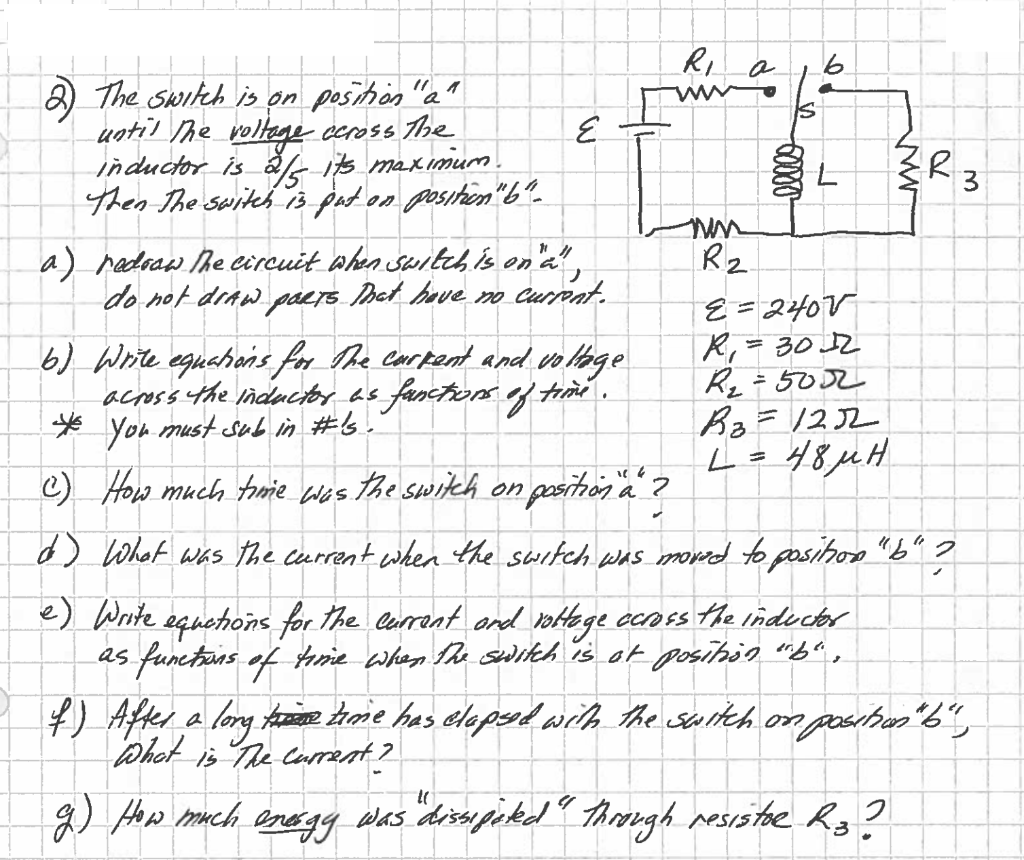 R1 a b
2) The switch is on position "a"
S
until the voltage across the
ε
inductor is 2/5 its maximum.
L R3
Then the switch is put on position "b".
a) redraw the circuit when switch is on "a",
R2
do not draw parts that have no current.
ε = 240V
b) Write equations for the current and voltage
R1 = 30 Ω
across the inductor as functions of time.
R2 = 50 Ω
* You must sub in #'s.
R3 = 12 Ω
L = 48 μH
c) How much time was the switch on position "a"?
d) What was the current when the switch was moved to position "b"?
e) Write equations for the current and voltage across the inductor
as functions of time when the switch is at position "b".
f) After a long time has elapsed with the switch on position "b",
What is the current?
g) How much energy was "dissipated" through resistor R3?